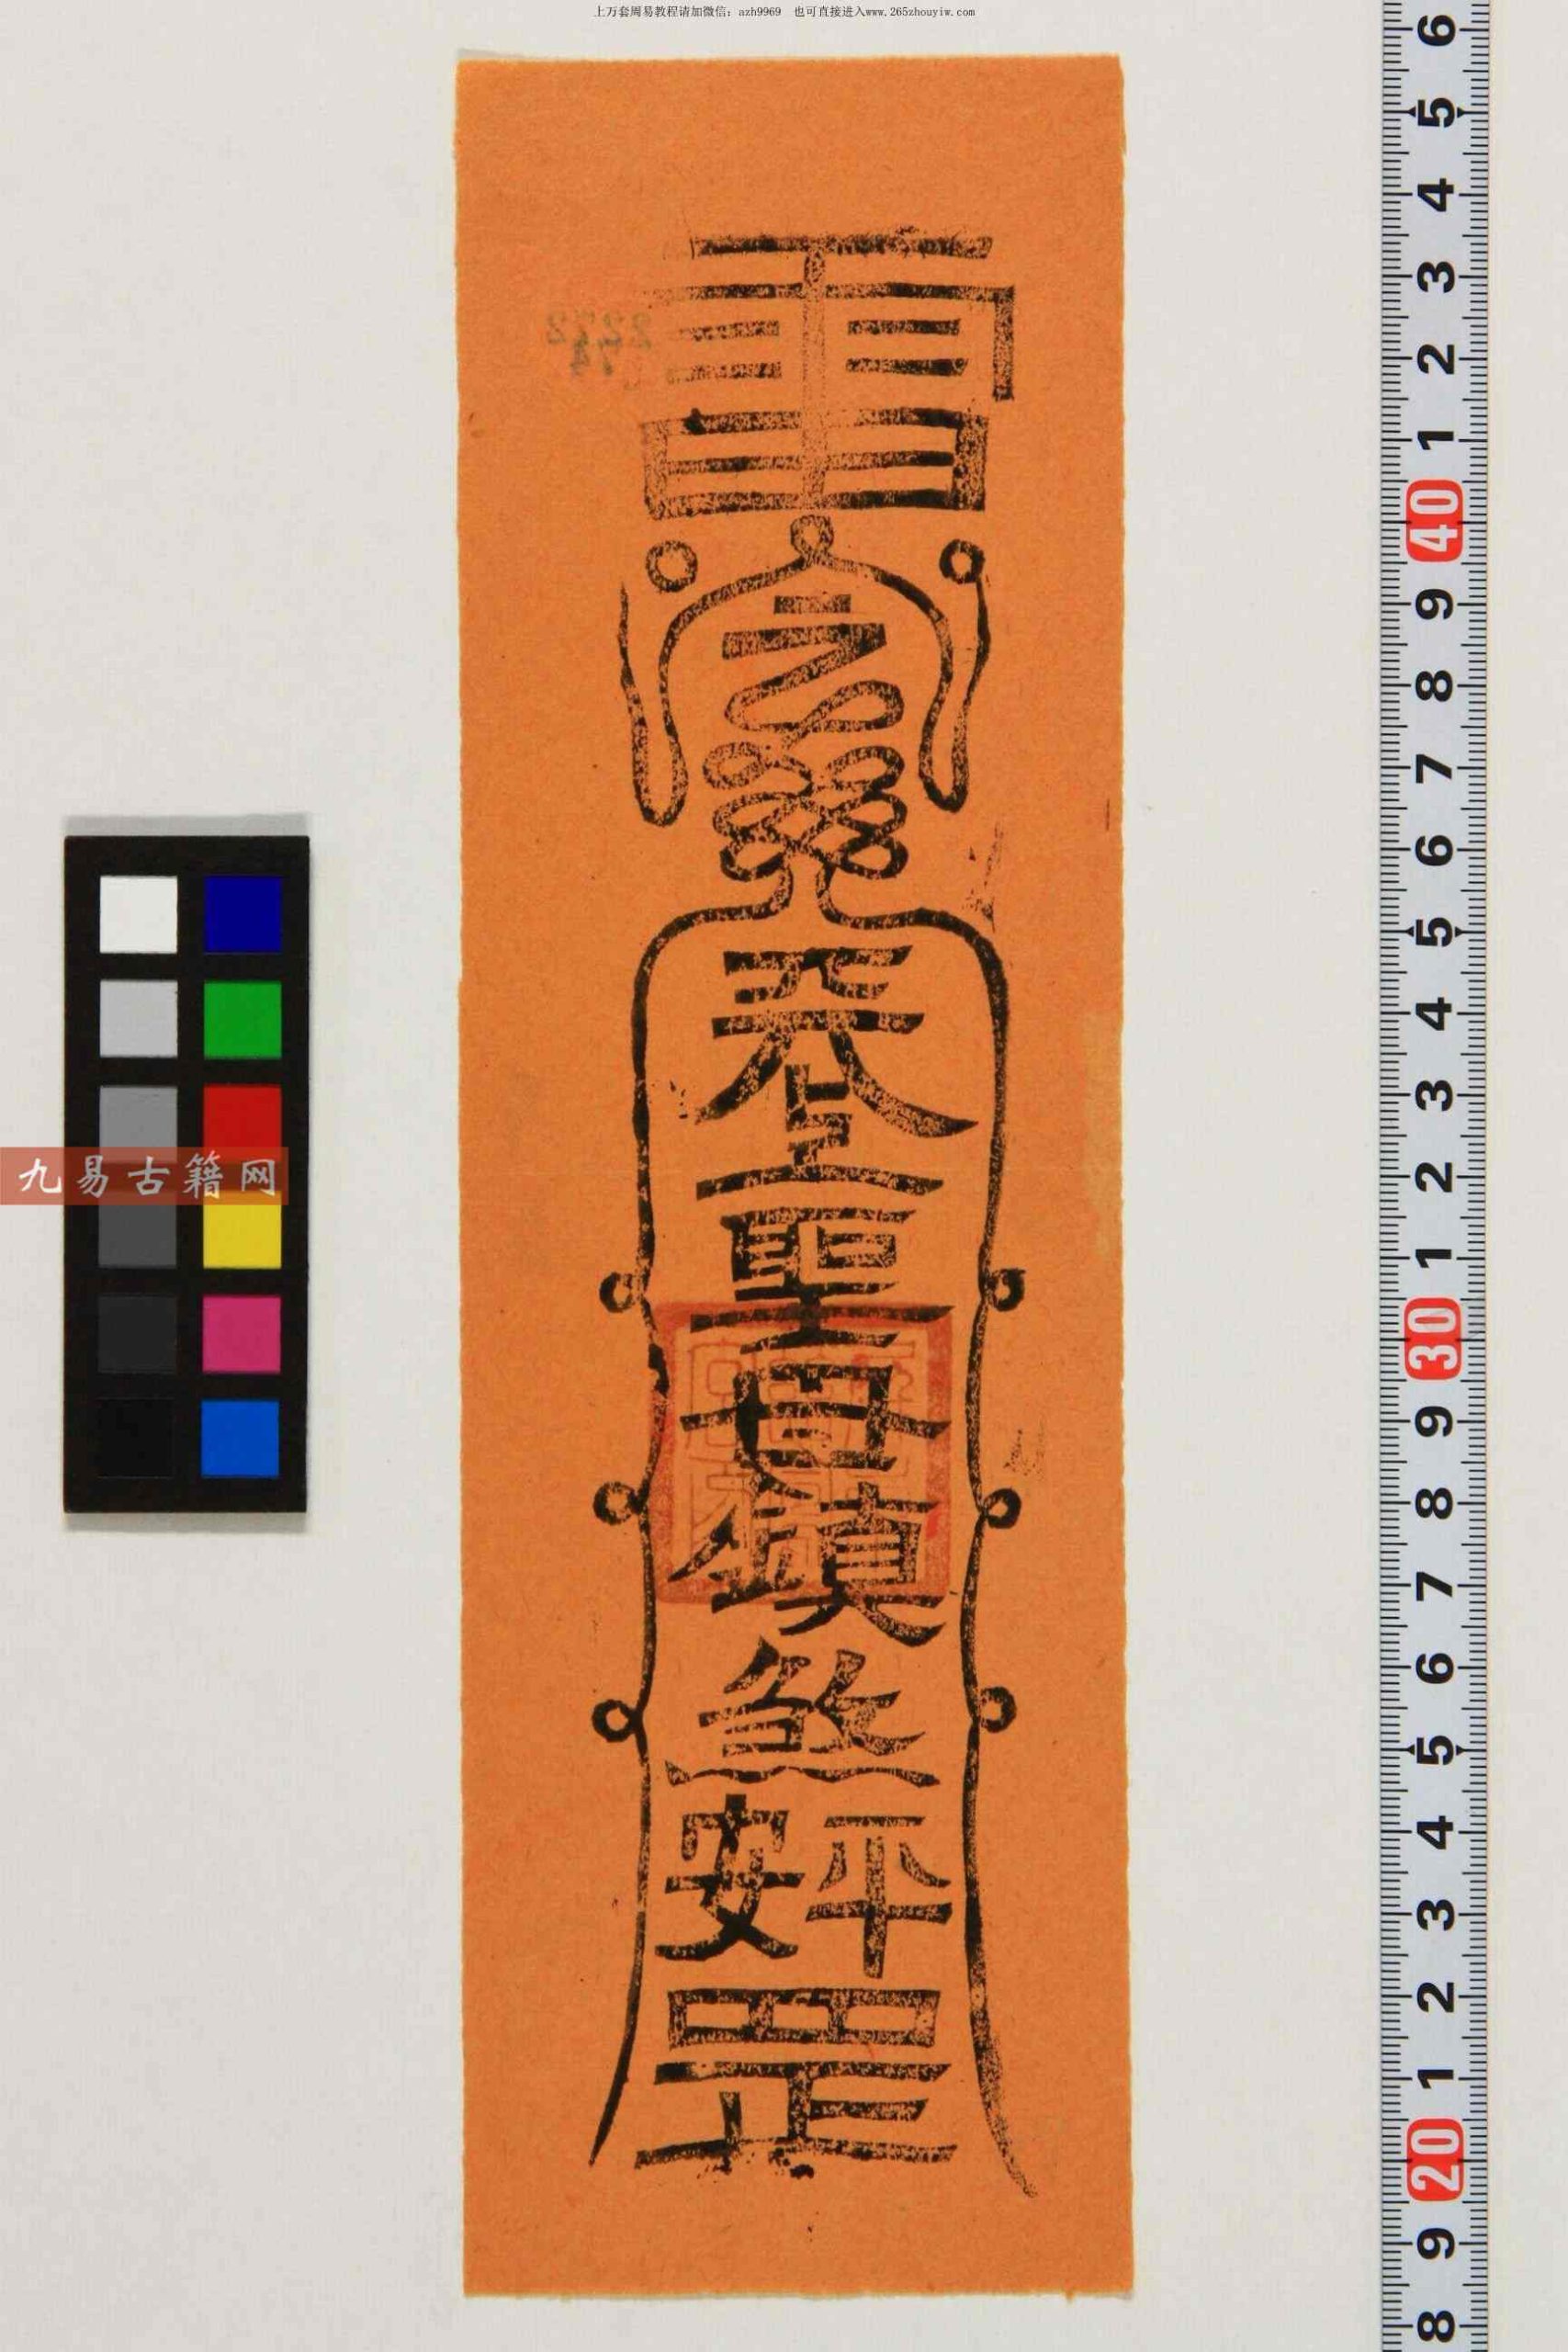 上万套周易教程请加微信：azh9969 也可直接进入www.265zhouyiw.com
雷
天上聖母鎮煞
平安
罡
九易古籍网
6
5
4
3
2
1
40
9
8
7
6
5
4
3
2
1
30
9
8
7
6
5
4
3
2
1
20
9
8